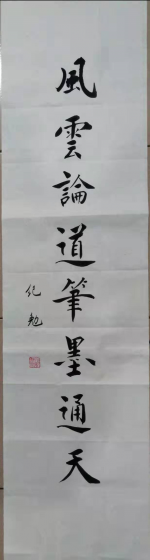 風雲論道筆墨通天